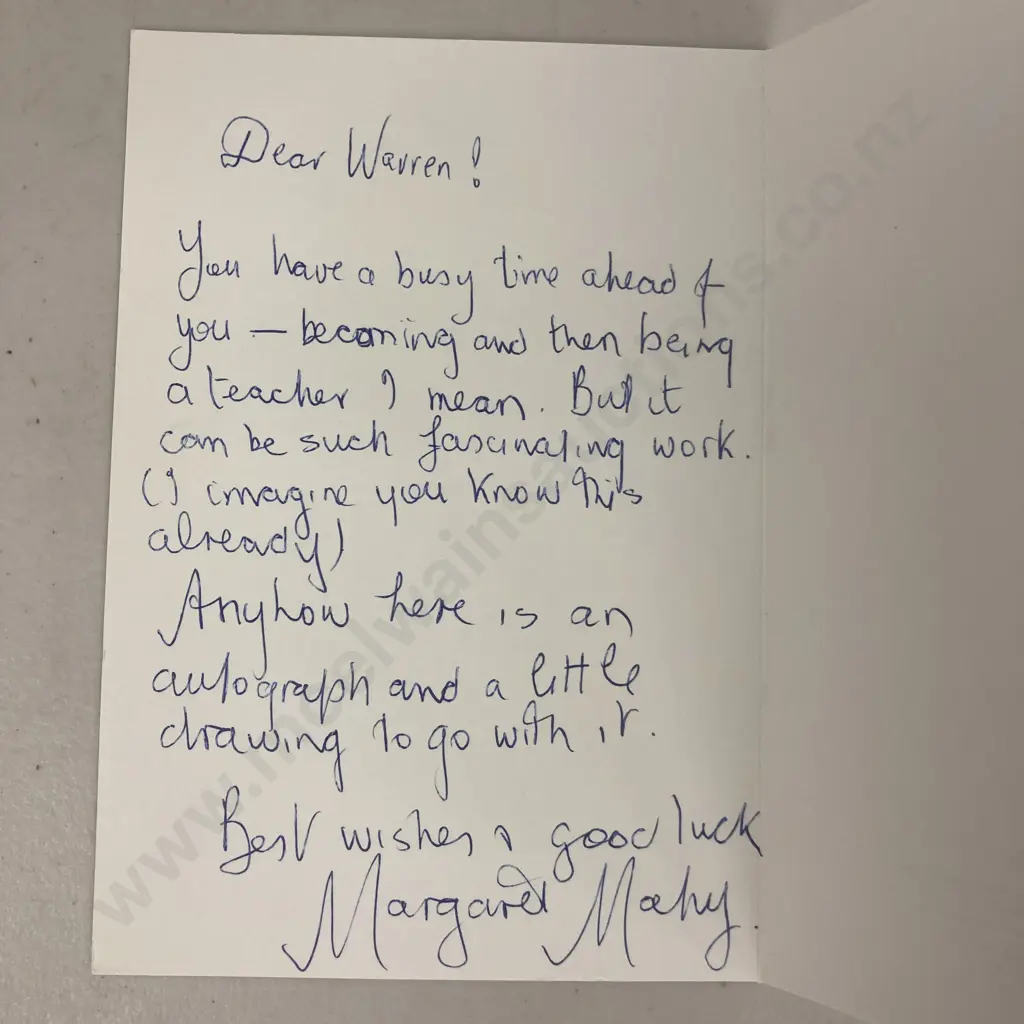 Dear Warren!
You have a busy time ahead of
you — becoming and then being
a teacher I mean. But it
can be such fascinating work.
(I imagine you know this
already)
Anyhow here is an
autograph and a little
drawing to go with it.
Best wishes & good luck
Margaret Mahy.
www.mcelwainsauctions.co.nz